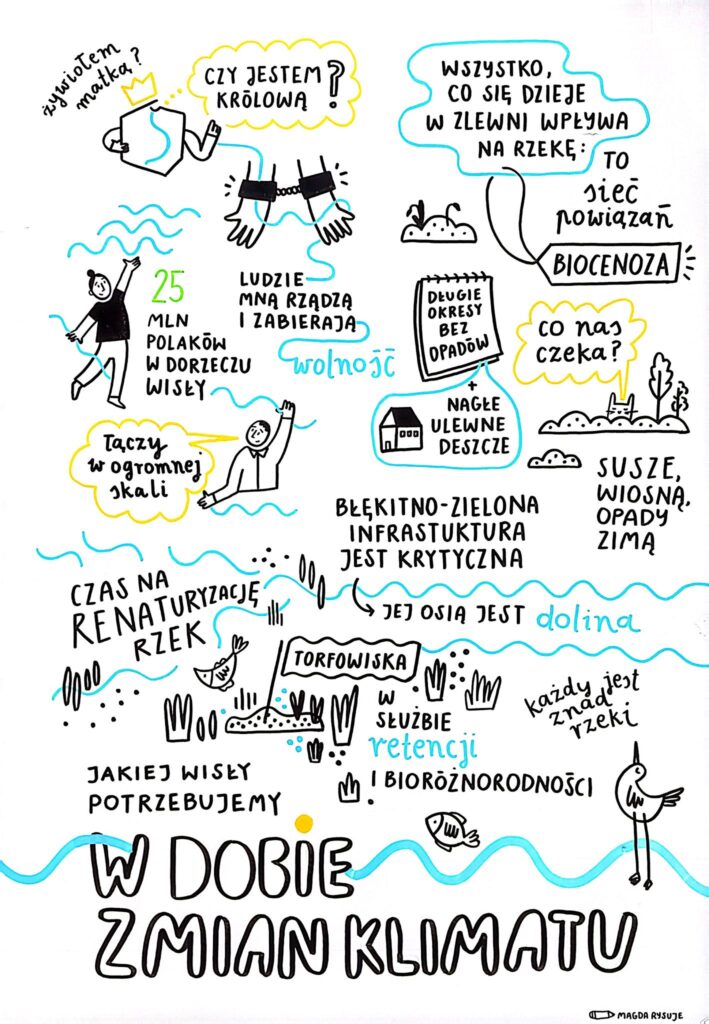 żywiołem
matką?
CZY JESTEM
KRÓLOWĄ?
WSZYSTKO,
CO SIĘ DZIEJE
W ZLEWNI WPŁYWA
NA RZEKĘ:
TO
sieć
powiązań
BIOCENOZA
25
MLN
POLAKÓW
W DORZECZU
WISŁY
LUDZIE
MNĄ RZĄDZĄ
I ZABIERAJĄ
wolność
DŁUGIE
OKRESY
BEZ
OPADÓW
+
NAGŁE
ULEWNE
DESZCZE
CO NAS
CZEKA?
SUSZE,
WIOSNĄ,
OPADY
ZIMĄ
Łączy
w ogromnej
skali
BŁĘKITNO-ZIELONA
INFRASTUKTURA
JEST KRYTYCZNA
JEJ OSIĄ JEST dolina
CZAS NA
RENATURYZACJĘ
RZEK
TORFOWISKA
W
SŁUŻBIE
retencji
I BIORÓŻNORODNOŚCI
każdy jest
znad
rzeki
JAKIEJ WISŁY
POTRZEBUJEMY
W DOBIE
ZMIAN KLIMATU
MAGDA RYSUJE